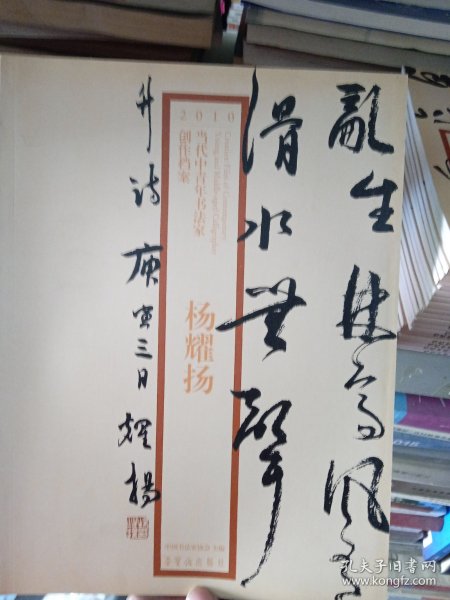 亂生林高風
滑水無聲
2010
Creation Files of Contemporary
Young and Middle-aged Calligrapher
当代中青年书法家
创作档案
杨耀扬
中国书法家协会 主编
荣宝斋出版社
升诗庚寅三月耀揚
孔夫子旧书网